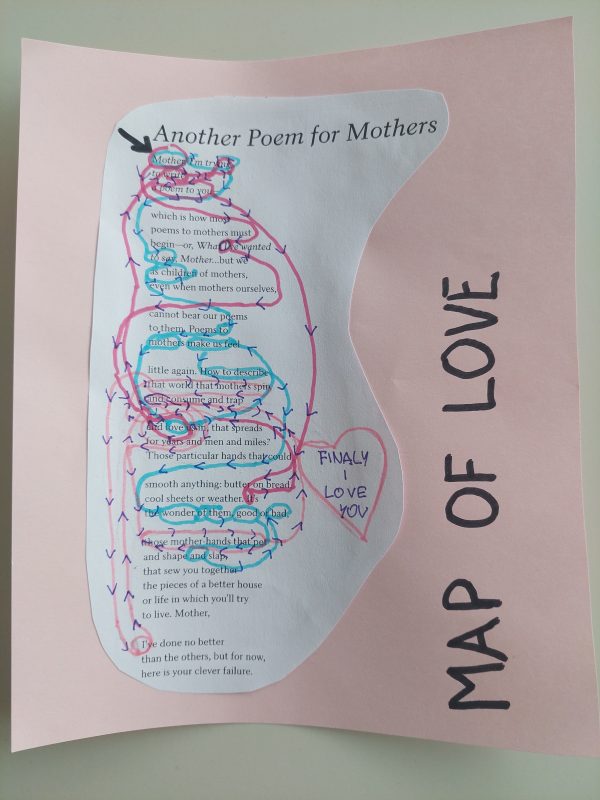 Another Poem for Mothers
Mother, I'm trying
to write
a poem to you
which is how most
poems to mothers must
begin—or, What I've wanted
to say, Mother...but we
as children of mothers,
even when mothers ourselves,
cannot bear our poems
to them. Poems to
mothers make us feel
little again. How to describe
that world that mothers spin
and consume and trap
and love us in, that spreads
for years and men and miles?
Those particular hands that could
smooth anything: butter on bread,
cool sheets or weather. It's
the wonder of them, good or bad,
those mother hands that pet
and shape and slap,
that sew you together
the pieces of a better house
or life in which you'll try
to live. Mother,
I've done no better
than the others, but for now,
here is your clever failure.
FINALY
I
LOVE
YOU
MAP OF LOVE